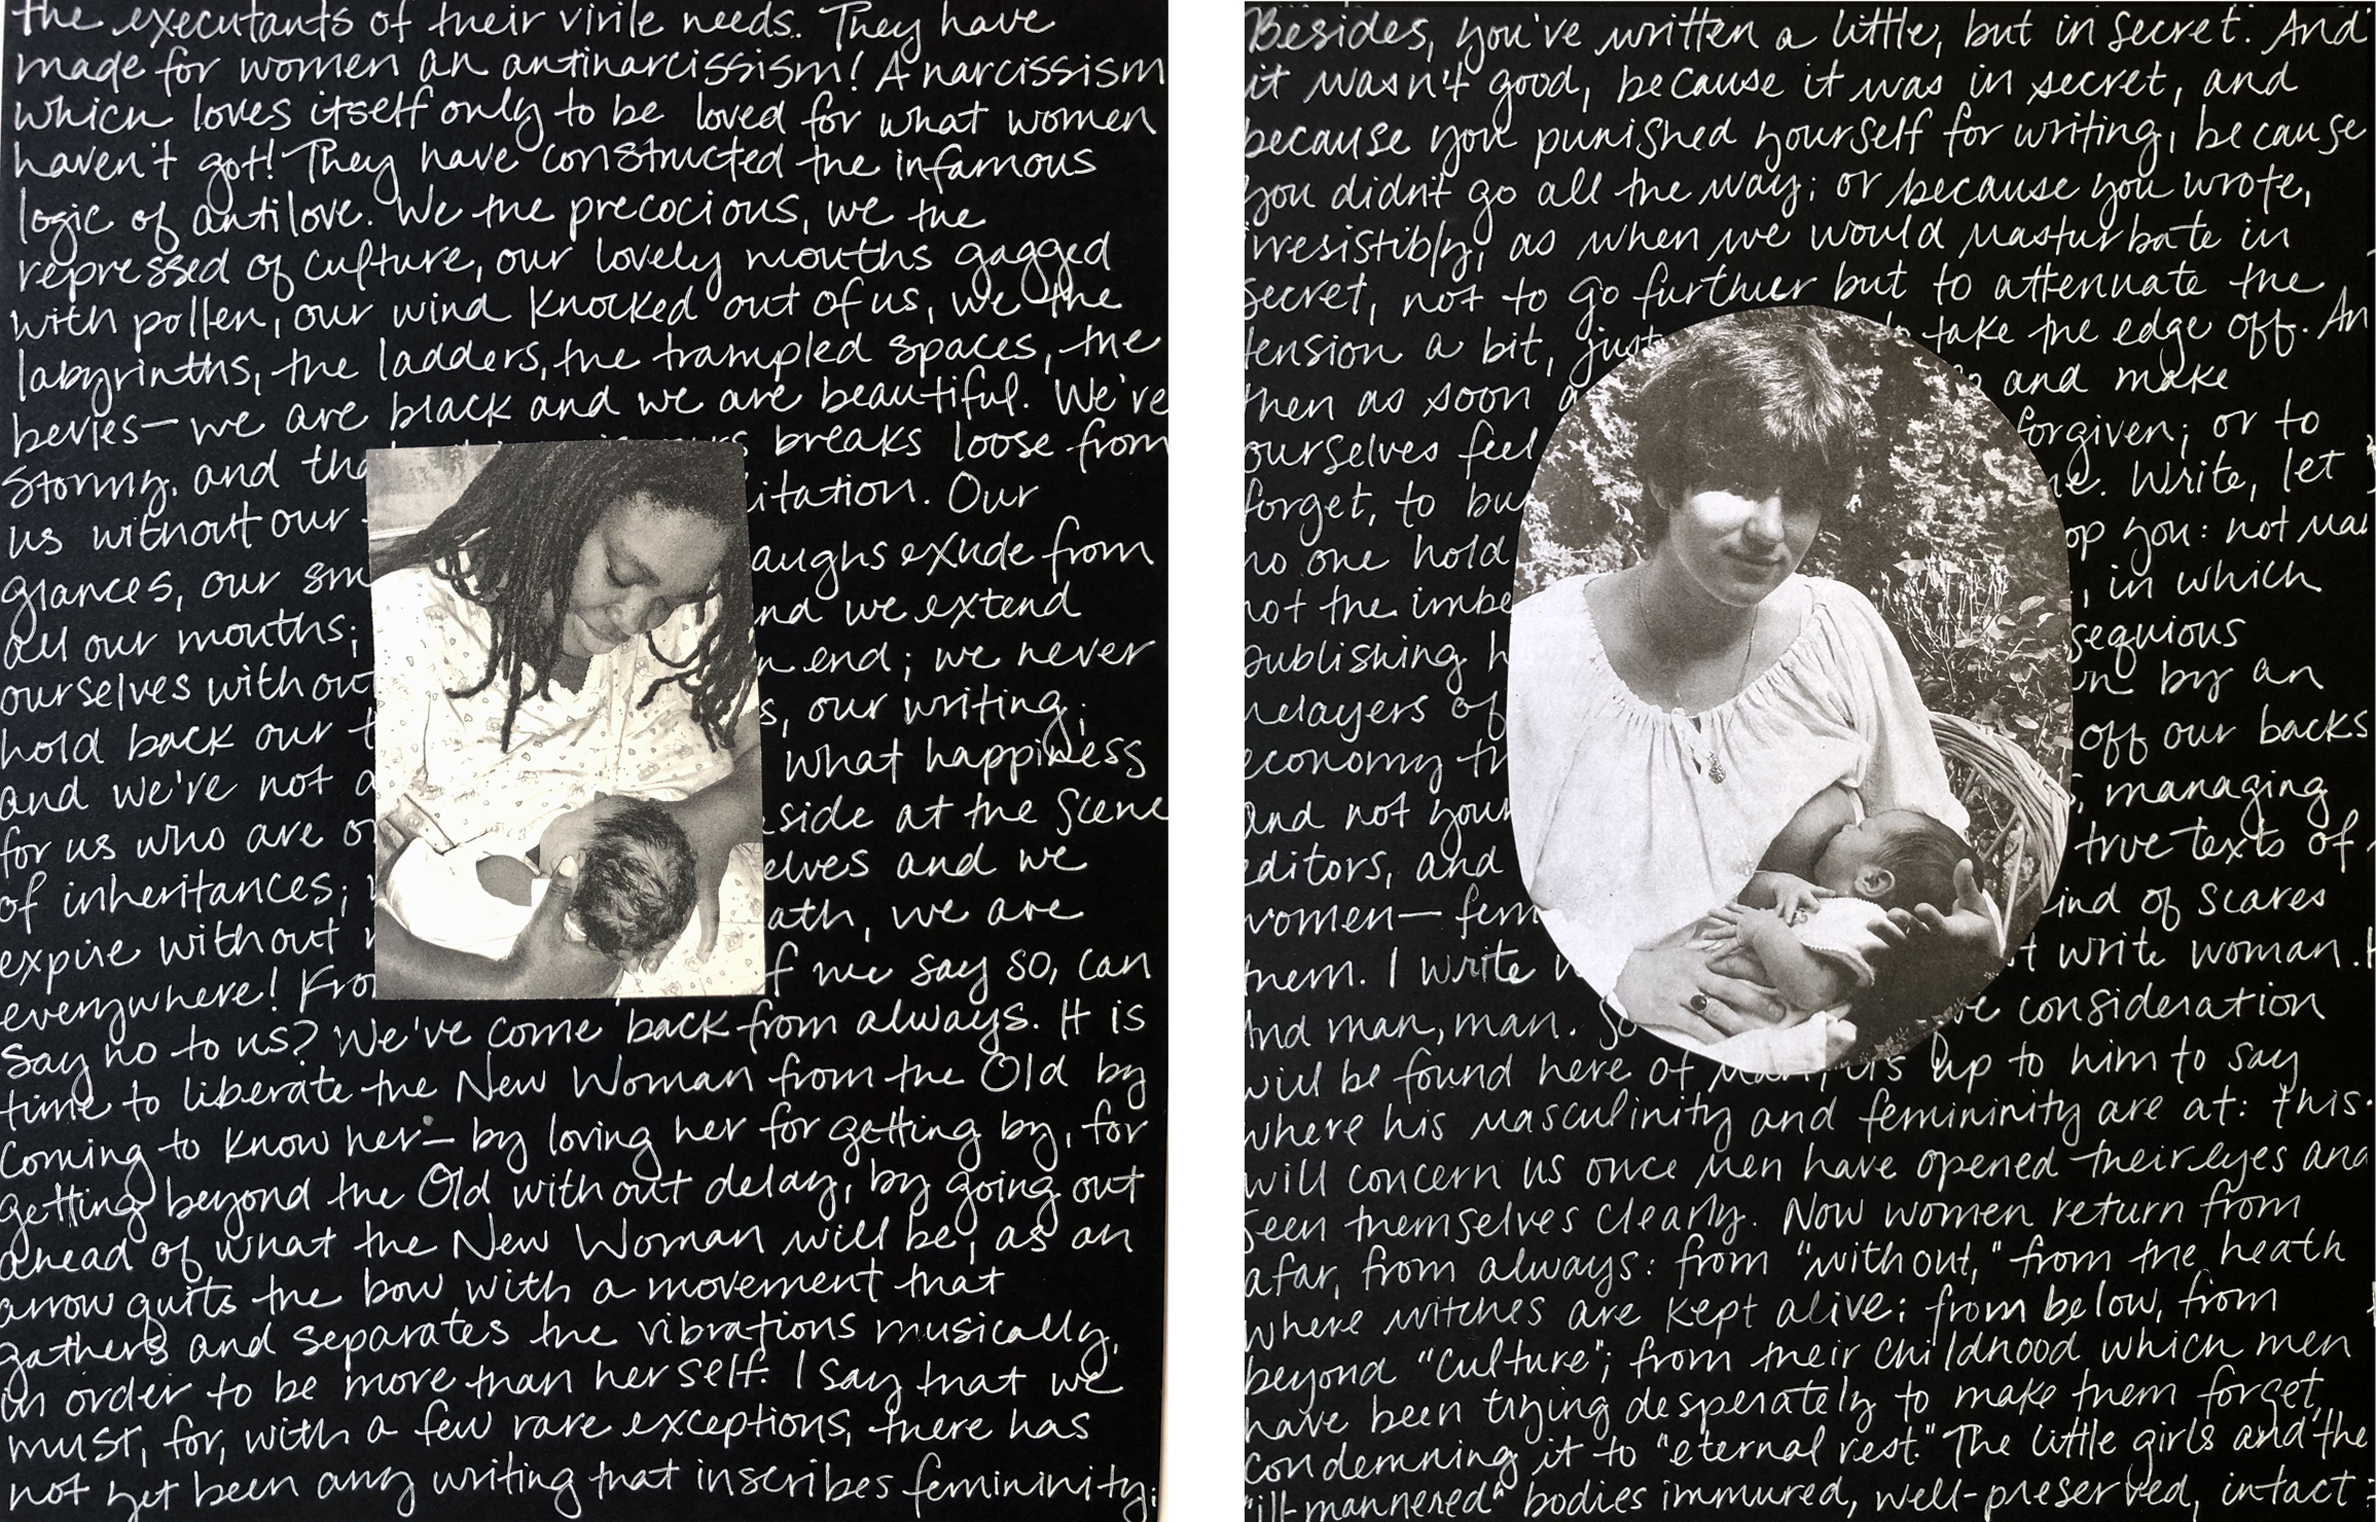 the executants of their virile needs. They have
made for women an antinarcissism! A narcissism
which loves itself only to be loved for what women
haven't got! They have constructed the infamous
logic of antilove. We the precocious, we the
repressed of culture, our lovely mouths gagged
with pollen, our wind knocked out of us, we the
labyrinths, the ladders, the trampled spaces, the
bevies—we are black and we are beautiful. We've
stormy, and tha breaks loose from
us without our itation. Our
glances, our sm aughs exude from
all our mouths; nd we extend
ourselves without n end; we never
hold back our t s, our writing;
and we're not a what happiness
for us who are o side at the scene
of inheritances; elves and we
expire without ath, we are
everywhere! Fro f we say so, can
say no to us? We've come back from always. It is
time to liberate the New Woman from the Old by
coming to know her—by loving her for getting by, for
getting beyond the Old without delay, by going out
ahead of what the New Woman will be, as an
arrow quits the bow with a movement that
gathers and separates the vibrations musically,
in order to be more than her self. I say that we
must, for, with a few rare exceptions, there has
not yet been any writing that inscribes femininity;
Besides, you've written a little, but in secret. And
it wasn't good, because it was in secret, and
because you punished yourself for writing, because
you didn't go all the way; or because you wrote,
irresistibly, as when we would masturbate in
secret, not to go further but to attenuate the
tension a bit, just take the edge off. An
then as soon a and make
ourselves feel forgiven; or to
forget, to bu ne. Write, let
no one hold op you: not man
not the imbe , in which
publishing h sequious
relayers of n by an
economy th off our backs
and not your , managing
editors, and true texts of
women—fem ind of scares
them. I write t write woman.
And man, man. So ve consideration
will be found here of man; it's up to him to say
where his masculinity and femininity are at: this
will concern us once men have opened their eyes and
seen themselves clearly. Now women return from
afar, from always: from "without," from the heath
where witches are kept alive; from below, from
beyond "culture"; from their childhood which men
have been trying desperately to make them forget,
condemning it to "eternal rest." The little girls and the
"ill-mannered" bodies immured, well-preserved, intact